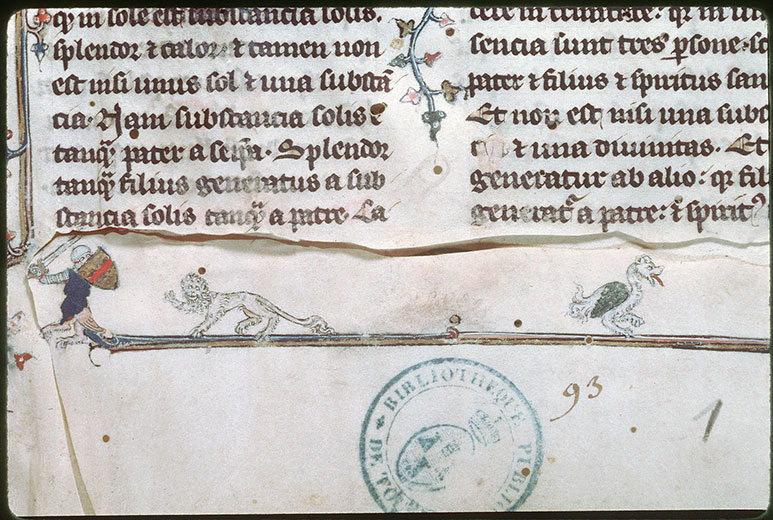 qꝫ in sole est substancia solis,
splendor ⁊ calor· ⁊ tamen non
est nisi unus sol ⁊ una substā
cia· Nam substancia solis ē
tanqͣꝫ pater a seip̄a· Splendor
tanqͣꝫ filius generatus a sub
stancia solis tanqͣꝫ a patre· Ca
sencia sunt tres p̱sone· sc
pater ⁊ filius ⁊ spiritus san
Et non est nisi una subs
⁊ una diuinitas· Et
generatur ab alio: qꝫ fil
generatͬ a patre: ⁊ spiritꝰ
93
1
BIBLIOTHEQUE PUBLI
DE TO